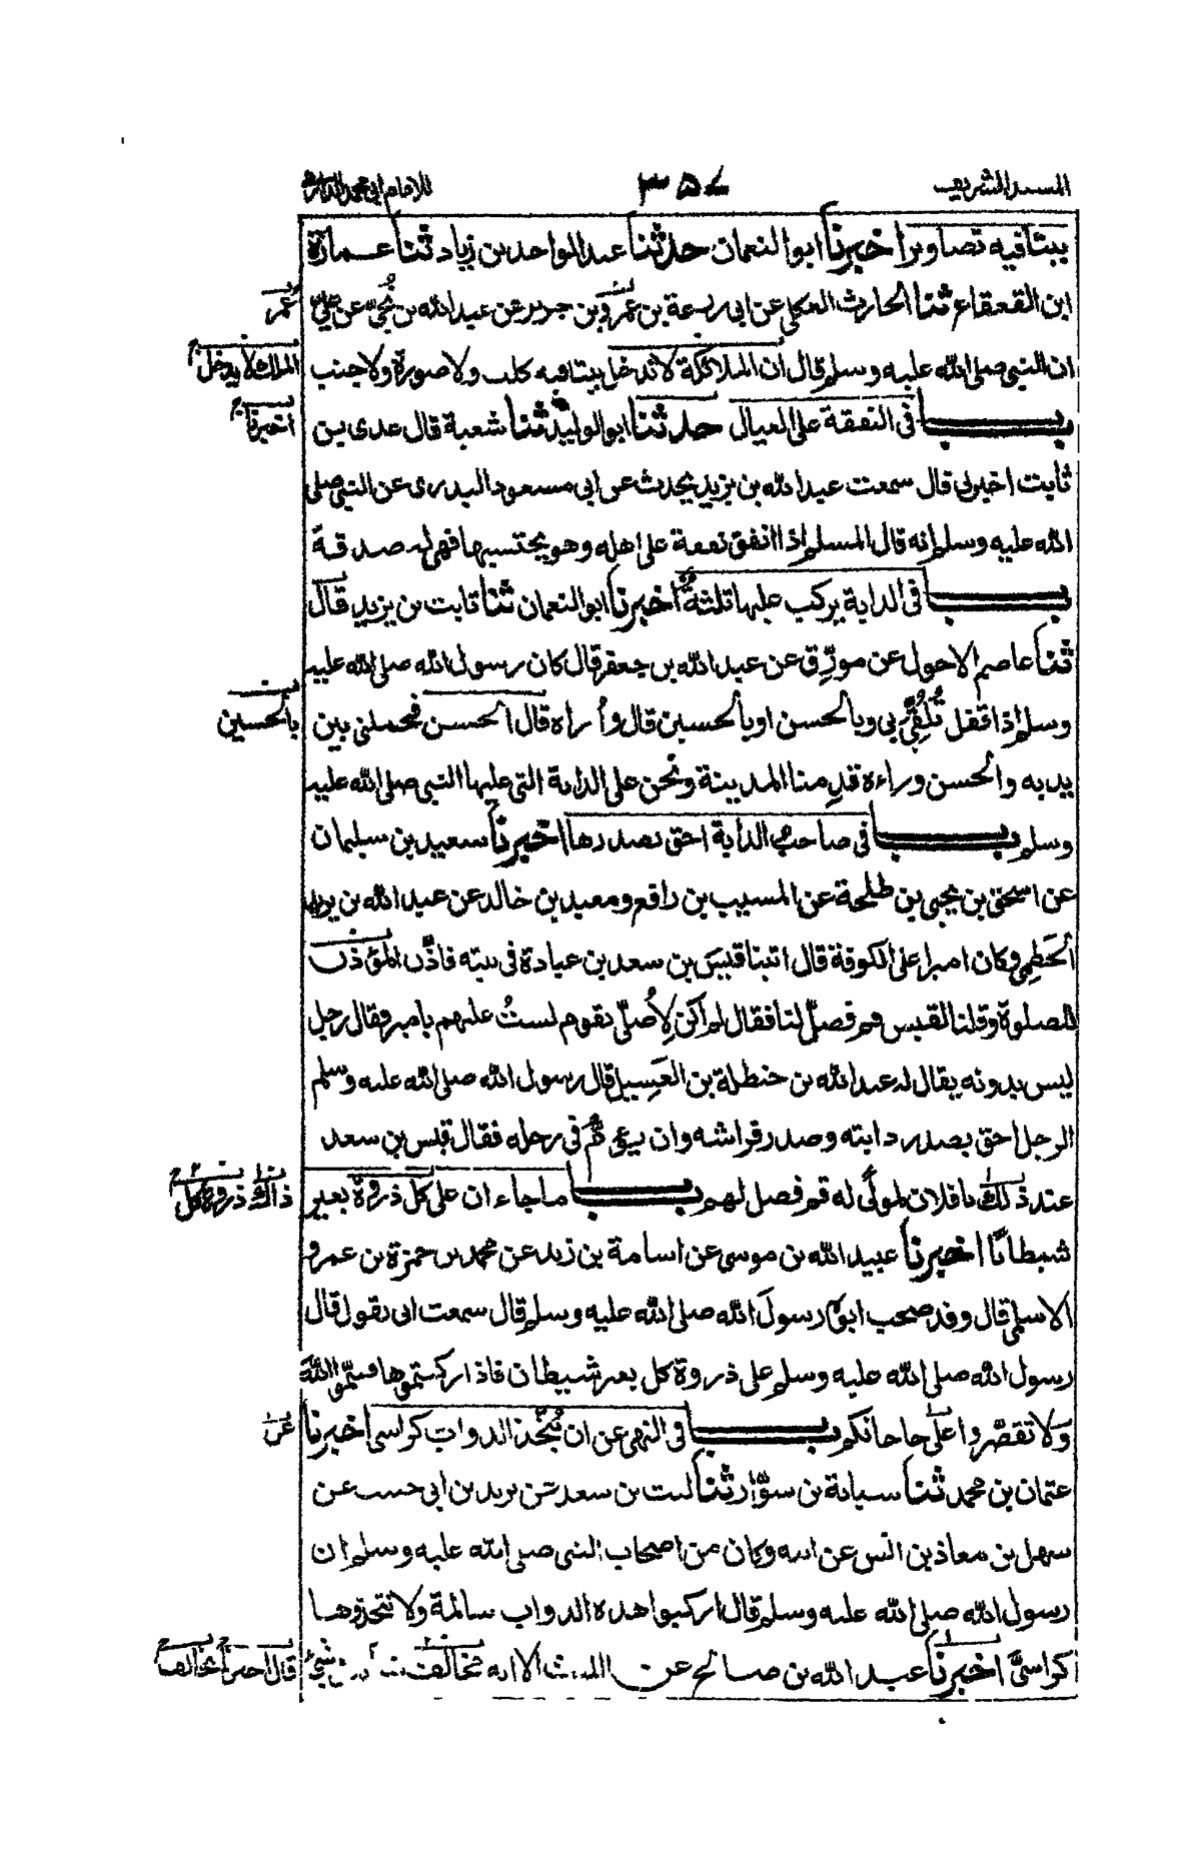 المسند الشريف ٣٥٧ للامام ابى محمد الدارمى
بيتا فيه تصاوير اخبرنا ابو النعمان حدثنا عبد الواحد بن زياد ثنا عمارة
ابن القعقاع ثنا الحارث العكلى عن ابى زرعة بن عمرو بن جرير عن عبد الله بن نُجَىّ عن علىّ
عُمر
ان النبى صلى الله عليه وسلم قال ان الملائكة لا تدخل بيتا فيه كلب ولا صورة ولا جنب
الملك لا يدخل
بـــاب فى النفقة على العيال حدثنا ابو الوليد ثنا شعبة قال عدى بن
اخبرنا
ثابت اخبرنى قال سمعت عبد الله بن يزيد يحدث عن ابى مسعود البدرى عن النبى صلى
الله عليه وسلم انه قال المسلم اذا انفق نفقة على اهله وهو يحتسبها فهى له صدقة
بـــاب فى الدابة يركب عليها ثلثةٌ اخبرنا ابو النعمان ثنا ثابت بن يزيد قال
ثنا عاصم الاحول عن مورّق عن عبد الله بن جعفر قال كان رسول الله صلى الله عليه
وسلم اذا قفل تُلُقِّىَ بى وبالحسن او بالحسين قال وأراه قال الحسن فحملنى بين
بالحسين
يديه والحسن وراءه قدِمنا المدينة ونحن على الدابة التى عليها النبى صلى الله عليه
وسلم بـــاب فى صاحب الدابة احق بصدرها اخبرنا سعيد بن سليمان
عن اسحق بن يحيى بن طلحة عن المسيب بن رافع ومعبد بن خالد عن عبد الله بن يزيد
الخَطمِى وكان اميرا على الكوفة قال اتينا قيس بن سعد بن عبادة فى بيته فاذّن المؤذن
للصلوة وقلنا لقيس قم فصلّ لنا فقال لم اكن لِاُصلّى بقوم لستُ عليهم بامير فقال رجل
ليس بدونه يقال له عبد الله بن حنظلة بن الغَسِيل قال رسول الله صلى الله عليه وسلم
الرجل احق بصدر دابته وصدر فراشه وان يؤم فى رحله فقال قيس بن سعد
عند ذلك يا فلان لمولًى له قم فصل لهم بـــاب ما جاء ان على كل ذروة بعير
ذاك ذروة كل
شيطانًا اخبرنا عبيد الله بن موسى عن اسامة بن زيد عن محمد بن حمزة بن عمرو
الاسلمى قال وقد صحب ابوه رسولَ الله صلى الله عليه وسلم قال سمعت ابى يقول قال
رسول الله صلى الله عليه وسلم على ذروة كل بعير شيطان فاذا ركبتموها فسمّوا اللهَ
ولا تقصّروا على حاجاتكم بـــاب فى النهى عن ان تُتّخذ الدواب كراسى اخبرنا
عن
عثمان بن محمد ثنا شبابة بن سوّار ثنا ليث بن سعد عن يزيد بن ابى حبيب عن
سهل بن معاذ بن انس عن ابيه وكان من اصحاب النبى صلى الله عليه وسلم ان
رسول الله صلى الله عليه وسلم قال اركبوا هذه الدواب سالمة ولا تتخذوها
كراسىَّ اخبرنا عبد الله بن صالح عن الليث الا انه يخالف شىءٍ
قال اخبرنا يخالف